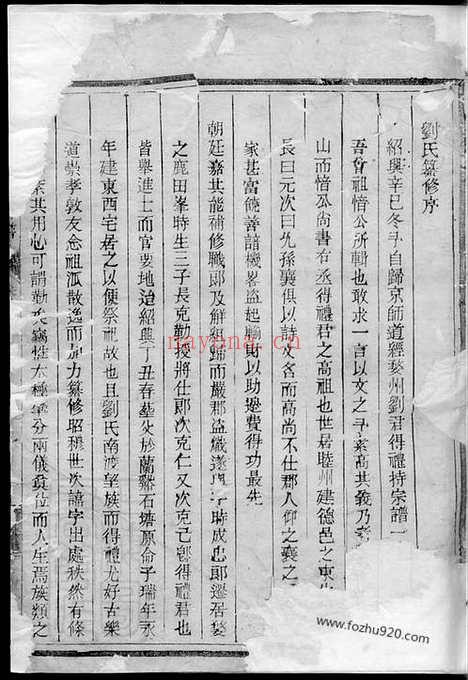 劉氏纂修序
紹興辛巳冬予自歸京師道經婺州劉君得禮持宗譜一
吾曾祖愔公所輯也敢求一言以文之予素高其義乃
山而愔公尚書右丞得禮君之高祖也世居睦州建德邑之東
長曰元次曰允孫襄俱以詩文名而高尚不仕郡人仰之襄之
家甚富饒善諳機畧盜起輸財以助邊費得功最先
朝廷嘉其能補修職郎及解組歸而嚴郡盜熾遂 時成忠郎遷居婺
之鹿田峯時生三子長克勤授將仕郎次克仁又次克己卽得禮君也
皆舉進士而官要地迨紹興丁丑春塟父於蘭谿石壇原命子瑞年永
年建東西宅居之以便祭祀故也且劉氏南渡望族而得禮尤好古樂
道崇孝敦友念祖派散逸而加力纂修昭穆世次諱字出處秩然有條
其用心可謂勤矣竊惟太極肇分兩儀奠位而人生焉族類之
nayona.cn
www.fozhu920.com